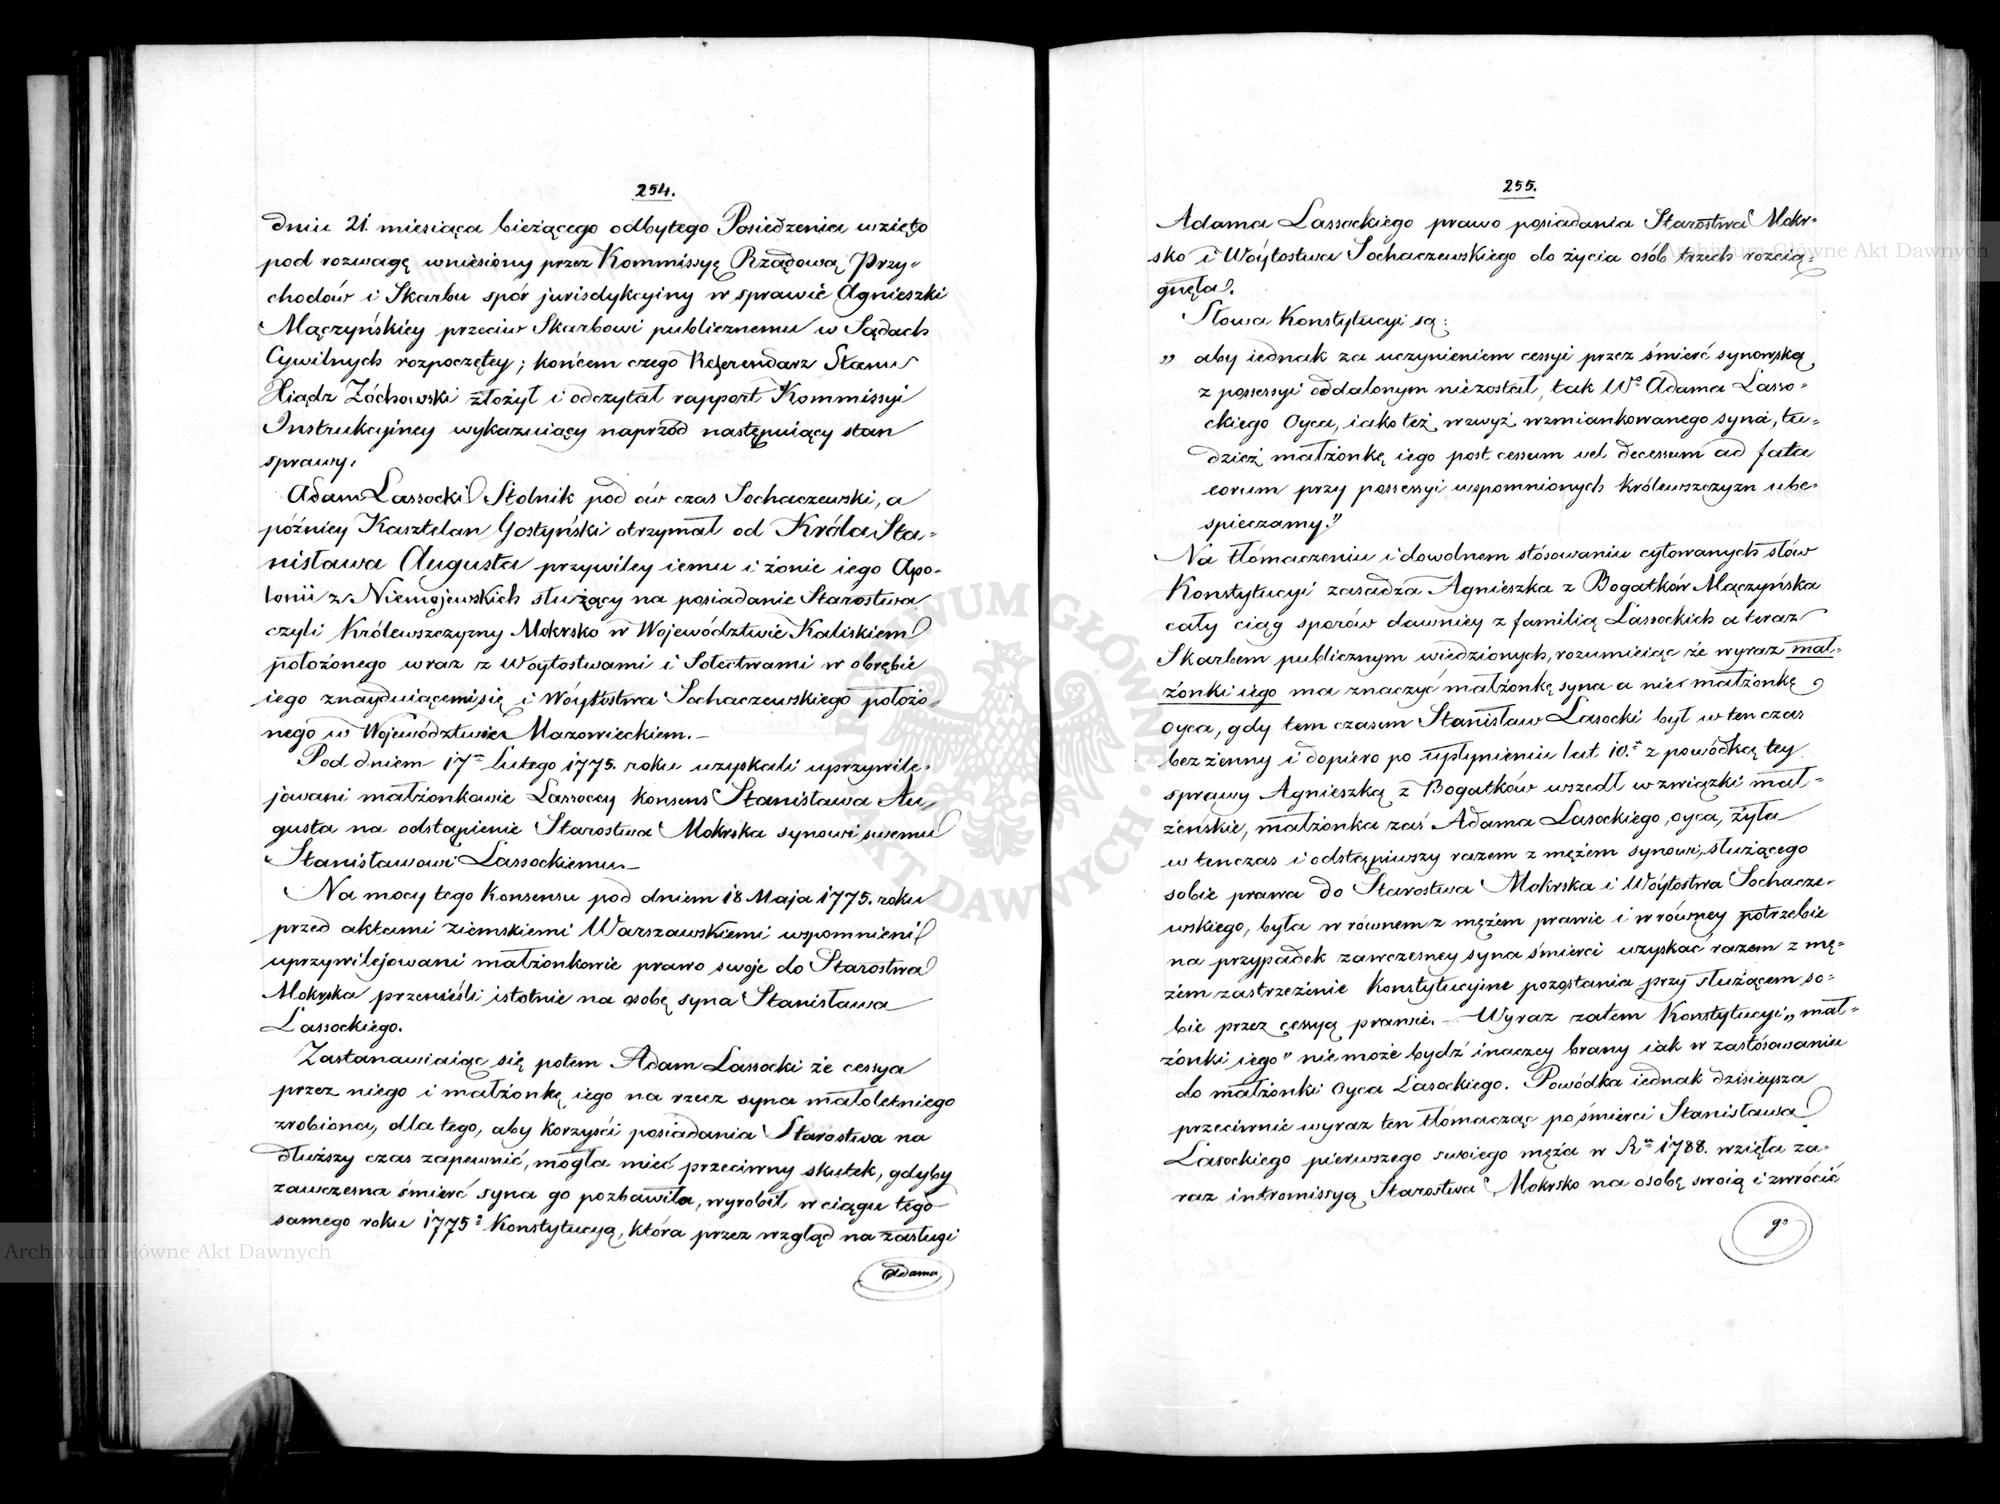 254.
dniu 21. miesiąca bieżącego odbytego Posiedzenia wzięto
pod rozwagę wniesiony przez Kommissyę Rządową Przy-
chodów i Skarbu spór jurisdykcyiny w sprawie Agnieszki
Mączyńskiey przeciw Skarbowi publicznemu w Sądach
Cywilnych rozpoczętey; końcem czego Referendarz Stanu
Xiądz Żóchowski złożył i odczytał rapport Kommissyi
Instrukcyiney wykazuiący naprzód następuiący stan
sprawy.
Adam Lassocki Stolnik pod ów czas Sochaczewski, a
późniey Kasztelan Gostyński otrzymał od Króla Sta-
nisława Augusta przywiley iemu i żonie iego Apo-
lonii z Niemojewskich służący na posiadanie Starostwa
czyli Królewszczyzny Mokrsko w Województwie Kaliskiem
położonego wraz z Woytostwami i Sołectwami w obrębie
iego znayduiącemi się i Wóytostwa Sochaczewskiego położo-
nego w Województwie Mazowieckiem.—
Pod dniem 17m lutego 1775. roku uzyskali uprzywile-
jowani małżonkowie Lassoccy konsens Stanisława Au-
gusta na odstąpienie Starostwa Mokrska synowi swemu
Stanisławowi Lassockiemu.—
Na mocy tego Konsensu pod dniem 18 Maja 1775. roku
przed aktami ziemskiemi Warszawskiemi wspomnieni
uprzywilejowani małżonkowie prawo swoje do Starostwa
Mokrska przenieśli istotnie na osobę syna Stanisława
Lassockiego.
Zastanawiaiąc się potem Adam Lassocki że cessya
przez niego i małżonkę iego na rzecz syna małoletniego
zrobiona, dla tego, aby korzyści posiadania Starostwa na
dłuższy czas zapewnić, mogła mieć przeciwny skutek, gdyby
zawczesna śmierć syna go pozbawiła, wyrobił w ciągu tego
samego roku 1775º Konstytucyą, która przez wzgląd na zasługi
Adama
255.
Adama Lassockiego prawo posiadania Starostwa Mokr-
sko i Wóytostwa Sochaczewskiego do życia osób trzech rozcią-
gnęła.
Słowa Konstytucyi są:
„ aby iednak za uczynieniem cessyi przez śmierć synowską
z possessyi oddalonym nie został, tak Wo Adama Lasso-
ckiego Oyca, iako też wzwyż wzmiankowanego syna, tu-
dzież małżonkę iego post cessum vel decessum ad fata
eorum przy possessyi wspomnionych królewszczyzn ube-
spieczamy."
Na tłómaczeniu i dowolnem stósowaniu cytowanych słów
Konstytucyi zasadza Agnieszka z Bogatków Mączyńska
cały ciąg sporów dawniey z familią Lassockich a teraz
Skarbem publicznym wiedzionych, rozumieiąc że wyraz mał-
żonki iego ma znaczyć małżonkę syna a nie małżonkę
oyca, gdy tem czasem Stanisław Lasocki był w ten czas
bezżenny i dopiero po upłynieniu lat 10. z powódką tey
sprawy Agnieszką z Bogatków wszedł w związki mał-
żeńskie, małżonka zaś Adama Lasockiego, oyca, żyła
w tenczas i odstąpiwszy razem z mężem synowi, służącego
sobie prawa do Starostwa Mokrska i Wóytostwa Sochacze-
wskiego, była w równem z mężem prawie i w równey potrzebie
na przypadek zawczesney syna śmierci uzyskać razem z mę-
żem zastrzeżenie Konstytucyine pozostania przy służącem so-
bie przez cessyą prawie. — Wyraz zatem Konstytucyi „mał-
żonki iego" nie może bydź inaczey brany iak w zastósowaniu
do małżonki oyca Lasockiego. Powódka iednak dzisieysza
przeciwnie wyraz ten tłomacząc po śmierci Stanisława
Lasockiego pierwszego swoiego męża w Ru 1788. wzięła za-
raz intromissyą Starostwa Mokrsko na osobę swoią i zwrócić
go
ARCHIWUM GŁÓWNE AKT DAWNYCH
Archiwum Główne Akt Dawnych
Archiwum Główne Akt Dawnych